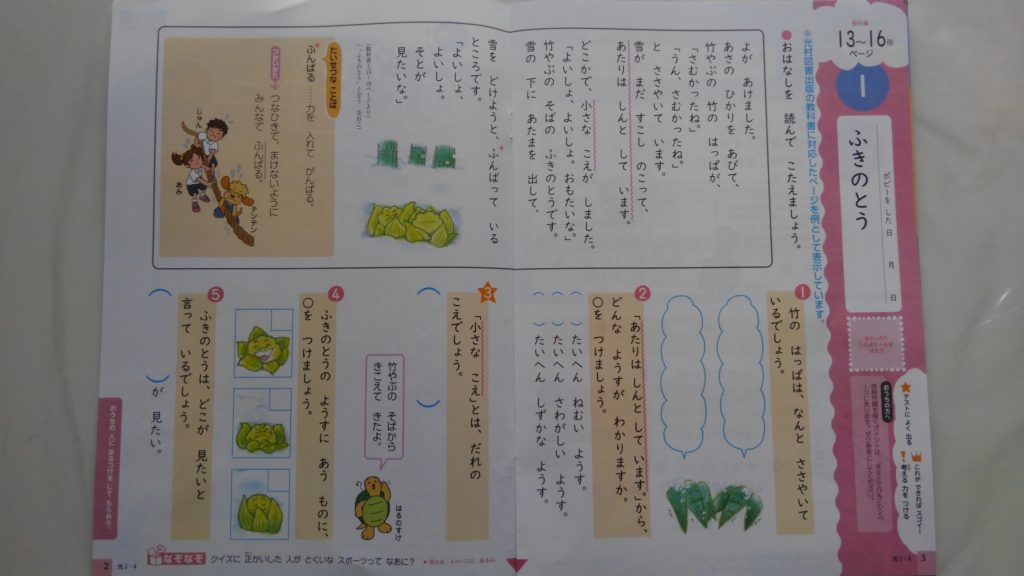 教科書
13～16※
ページ
1
ふきのとう
ポピーを した 日
月
日
※光村図書出版の教科書に対応したページを例として表示しています。
●おはなしを 読んで こたえましょう。
よが あけました。
あさの ひかりを あびて、
竹やぶの 竹の はっぱが、
「さむかったね。」
「うん、さむかったね。」
と ささやいて います。
雪が まだ すこし のこって、
あたりは しんと して います。
どこかで、小さな こえが しました。
「よいしょ、よいしょ。おもたいな。」
竹やぶの そばの ふきのとうです。
雪の 下に あたまを 出して、
雪を どけようと、ふんばって いる
ところです。
「よいしょ、
よいしょ。
そとが
見たいな。」
たいせつな ことば
ふんばる……力を 入れて がんばる。
つかいかた
つなひきで、まけないように
みんなで ふんばる。
じゅん
あみ
テンテン
1 竹の はっぱは、なんと ささやいて
いるでしょう。
2 「あたりは しんと して います。」から、
どんな ようすが わかりますか。
○を つけましょう。
（ ）たいへん ねむい ようす。
（ ）たいへん さわがしい ようす。
（ ）たいへん しずかな ようす。
3 「小さな こえ」とは、だれの
こえでしょう。
（ ）
竹やぶの そばから
きこえて きたよ。
はるのすけ
4 ふきのとうの ようすに あう ものに、
○を つけましょう。
5 ふきのとうは、どこが 見たいと
言って いるでしょう。
（ ）が 見たい。
おうちの方へ
★テストに よく 出る
!考える 力を つける
これが できれば スゴイ!
おうちの 人に まるつけを して もらおう。
なぞなぞ クイズに 正かいした 人が とくいな スポーツって なあに？
2 光2・4
光2・4 3